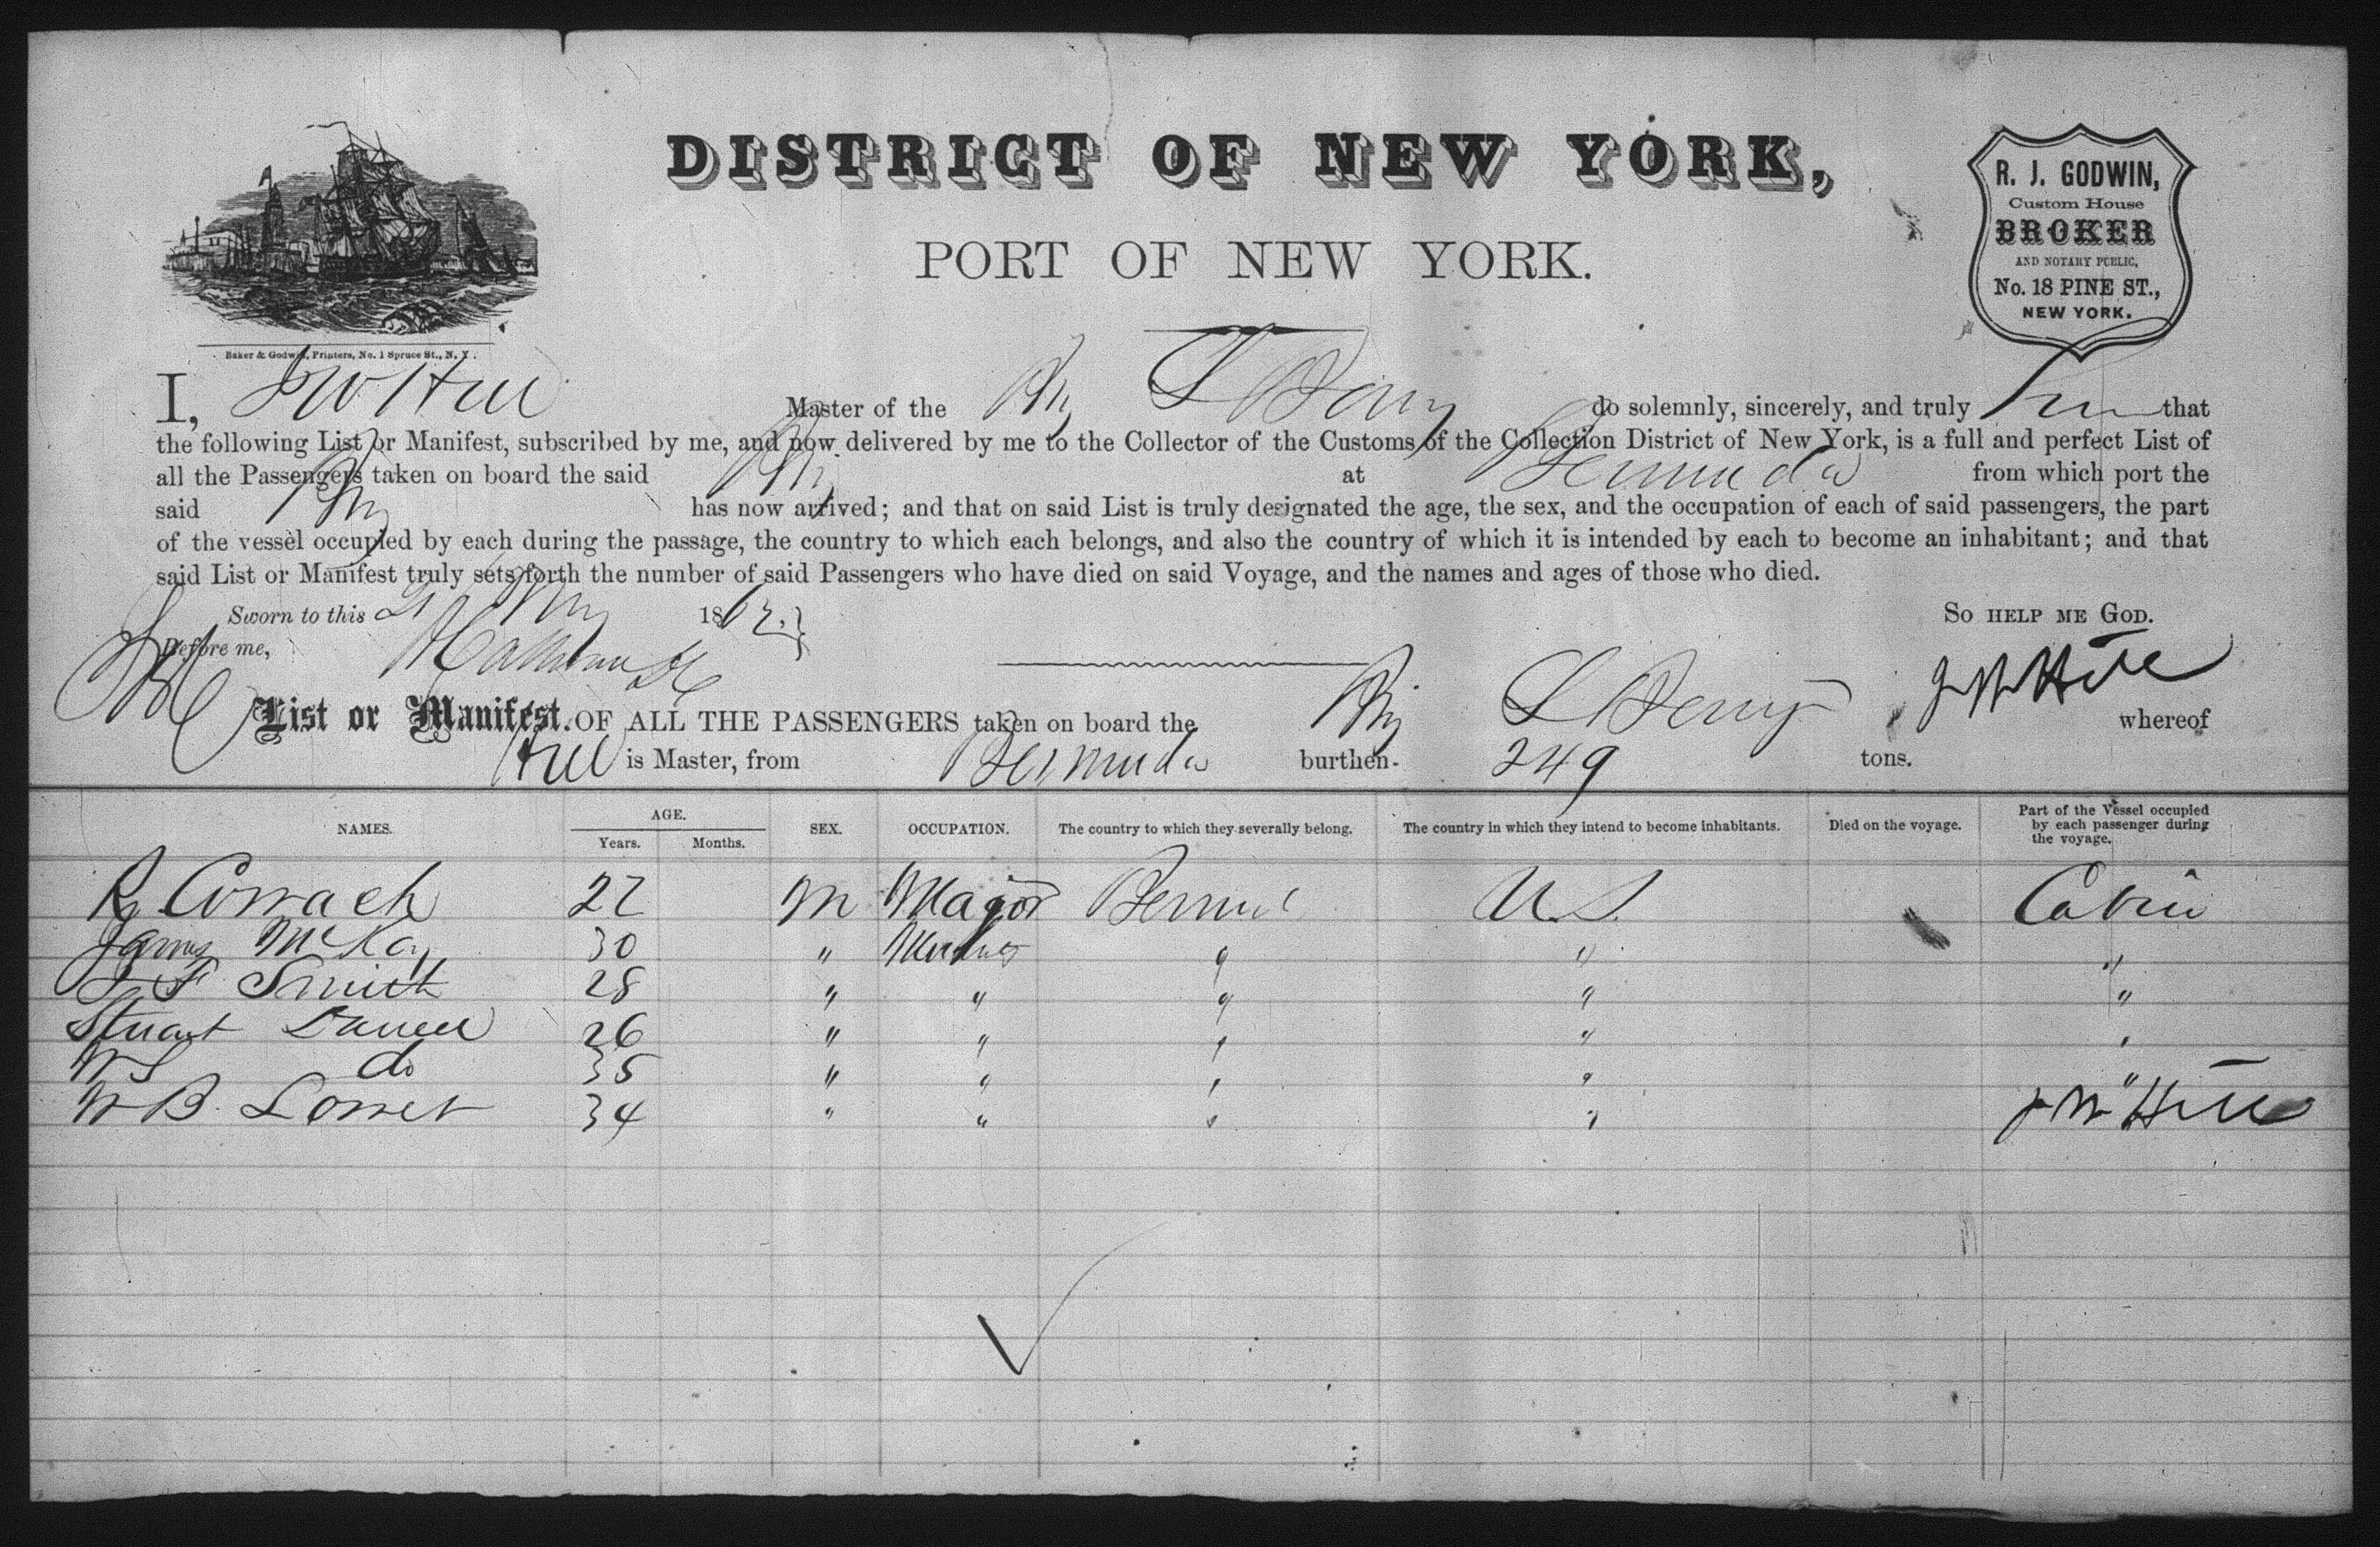 DISTRICT OF NEW YORK,
PORT OF NEW YORK.
R. J. GODWIN,
Custom House
BROKER
AND NOTARY PUBLIC,
No. 18 PINE ST.,
NEW YORK.
Baker & Godwin, Printers, No. 1 Spruce St., N. Y.
I, J W Hill Master of the Brig do solemnly, sincerely, and truly that
the following List or Manifest, subscribed by me, and now delivered by me to the Collector of the Customs of the Collection District of New York, is a full and perfect List of
all the Passengers taken on board the said Brig at Bermuda from which port the
said Brig has now arrived; and that on said List is truly designated the age, the sex, and the occupation of each of said passengers, the part
of the vessel occupied by each during the passage, the country to which each belongs, and also the country of which it is intended by each to become an inhabitant; and that
said List or Manifest truly sets forth the number of said Passengers who have died on said Voyage, and the names and ages of those who died.
Sworn to this 21 186 So HELP ME GOD.
Before me, J W Hill
List or Manifest. OF ALL THE PASSENGERS taken on board the Brig whereof
Hill is Master, from Bermuda burthen 249 tons.
NAMES. AGE. Years. Months. SEX. OCCUPATION. The country to which they severally belong. The country in which they intend to become inhabitants. Died on the voyage. Part of the Vessel occupied by each passenger during the voyage.
R 22 M Major U.S. Cabin
James McKay 30 " " " "
F Smith 28 " " " " "
Stuart 26 " " " " "
W S do 35 " " " " "
W B. 34 " " " " J W Hill